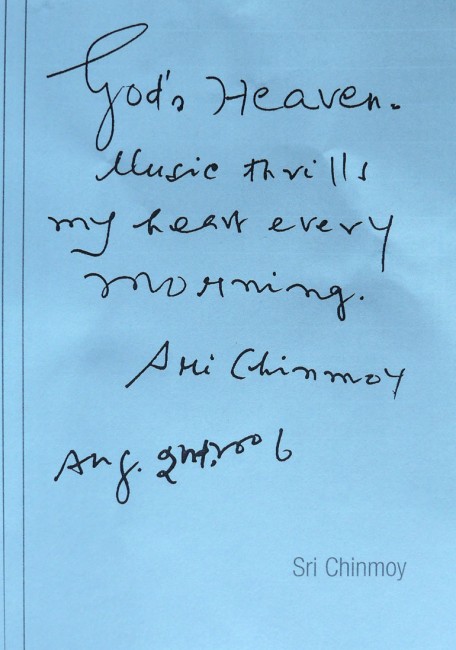 God's Heaven-
Music thrills
my heart every
morning.
Sri Chinmoy
Aug. 2006
Sri Chinmoy